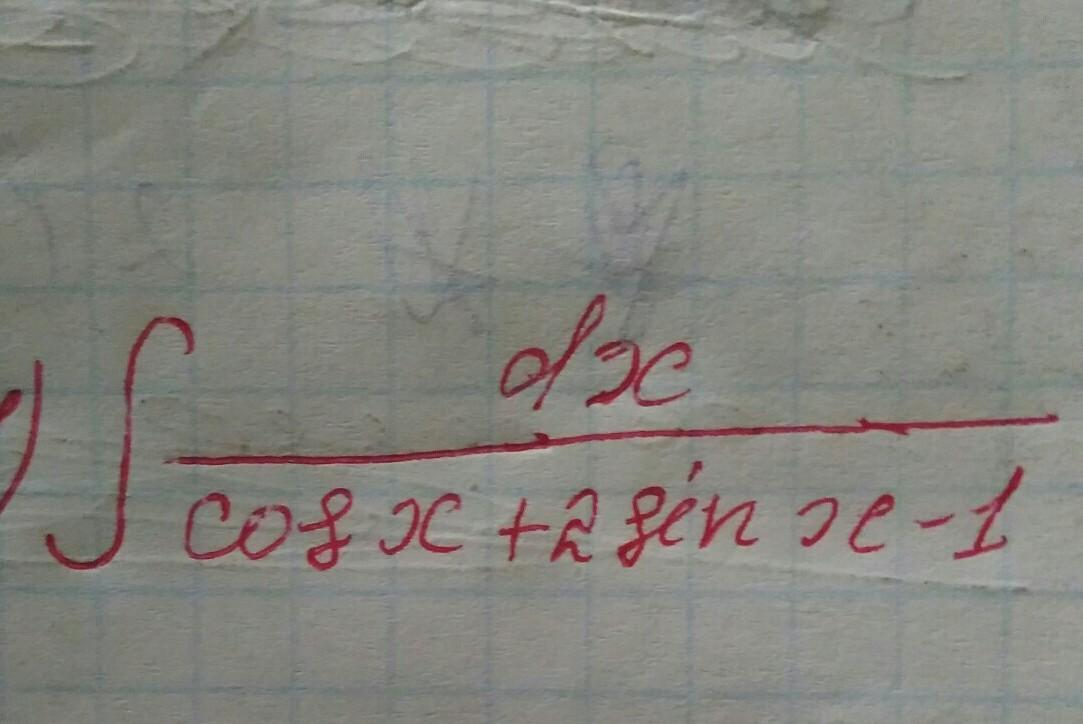 ) ∫ dx
cos x + 2 sin x - 1